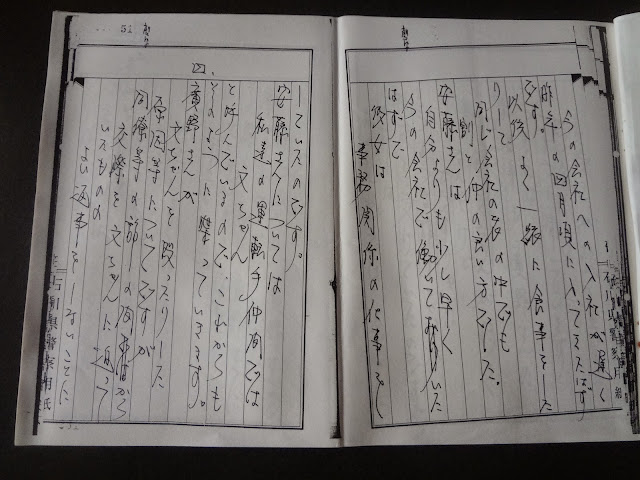 今の会社への入社が遅く
昨年の四月頃に入ってきたはず
です。
以後よく一緒に食事をした
りして
同じ会社の者の中でも
割と仲の良い方でした。
安藤さんは
自分よりも少し早く
今の会社で働いておりいた
はずで
彼女は
事務関係の仕事をし
51
ていたのです。
安藤さんについては
私達の運転手仲間では
文ちゃん
と呼んでいるので、これからも
そのように喋っていきます。
四、
音野さんが
文ちゃんを殴ったりした
原因等についてですが
同僚等の話しの内容から
交際を文ちゃんに迫って
いたものの
良い返事をしないことに
石川県警察用紙